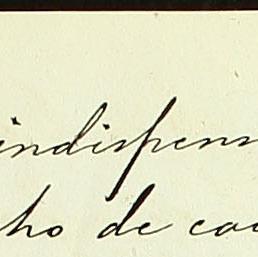 indispens
ho de co